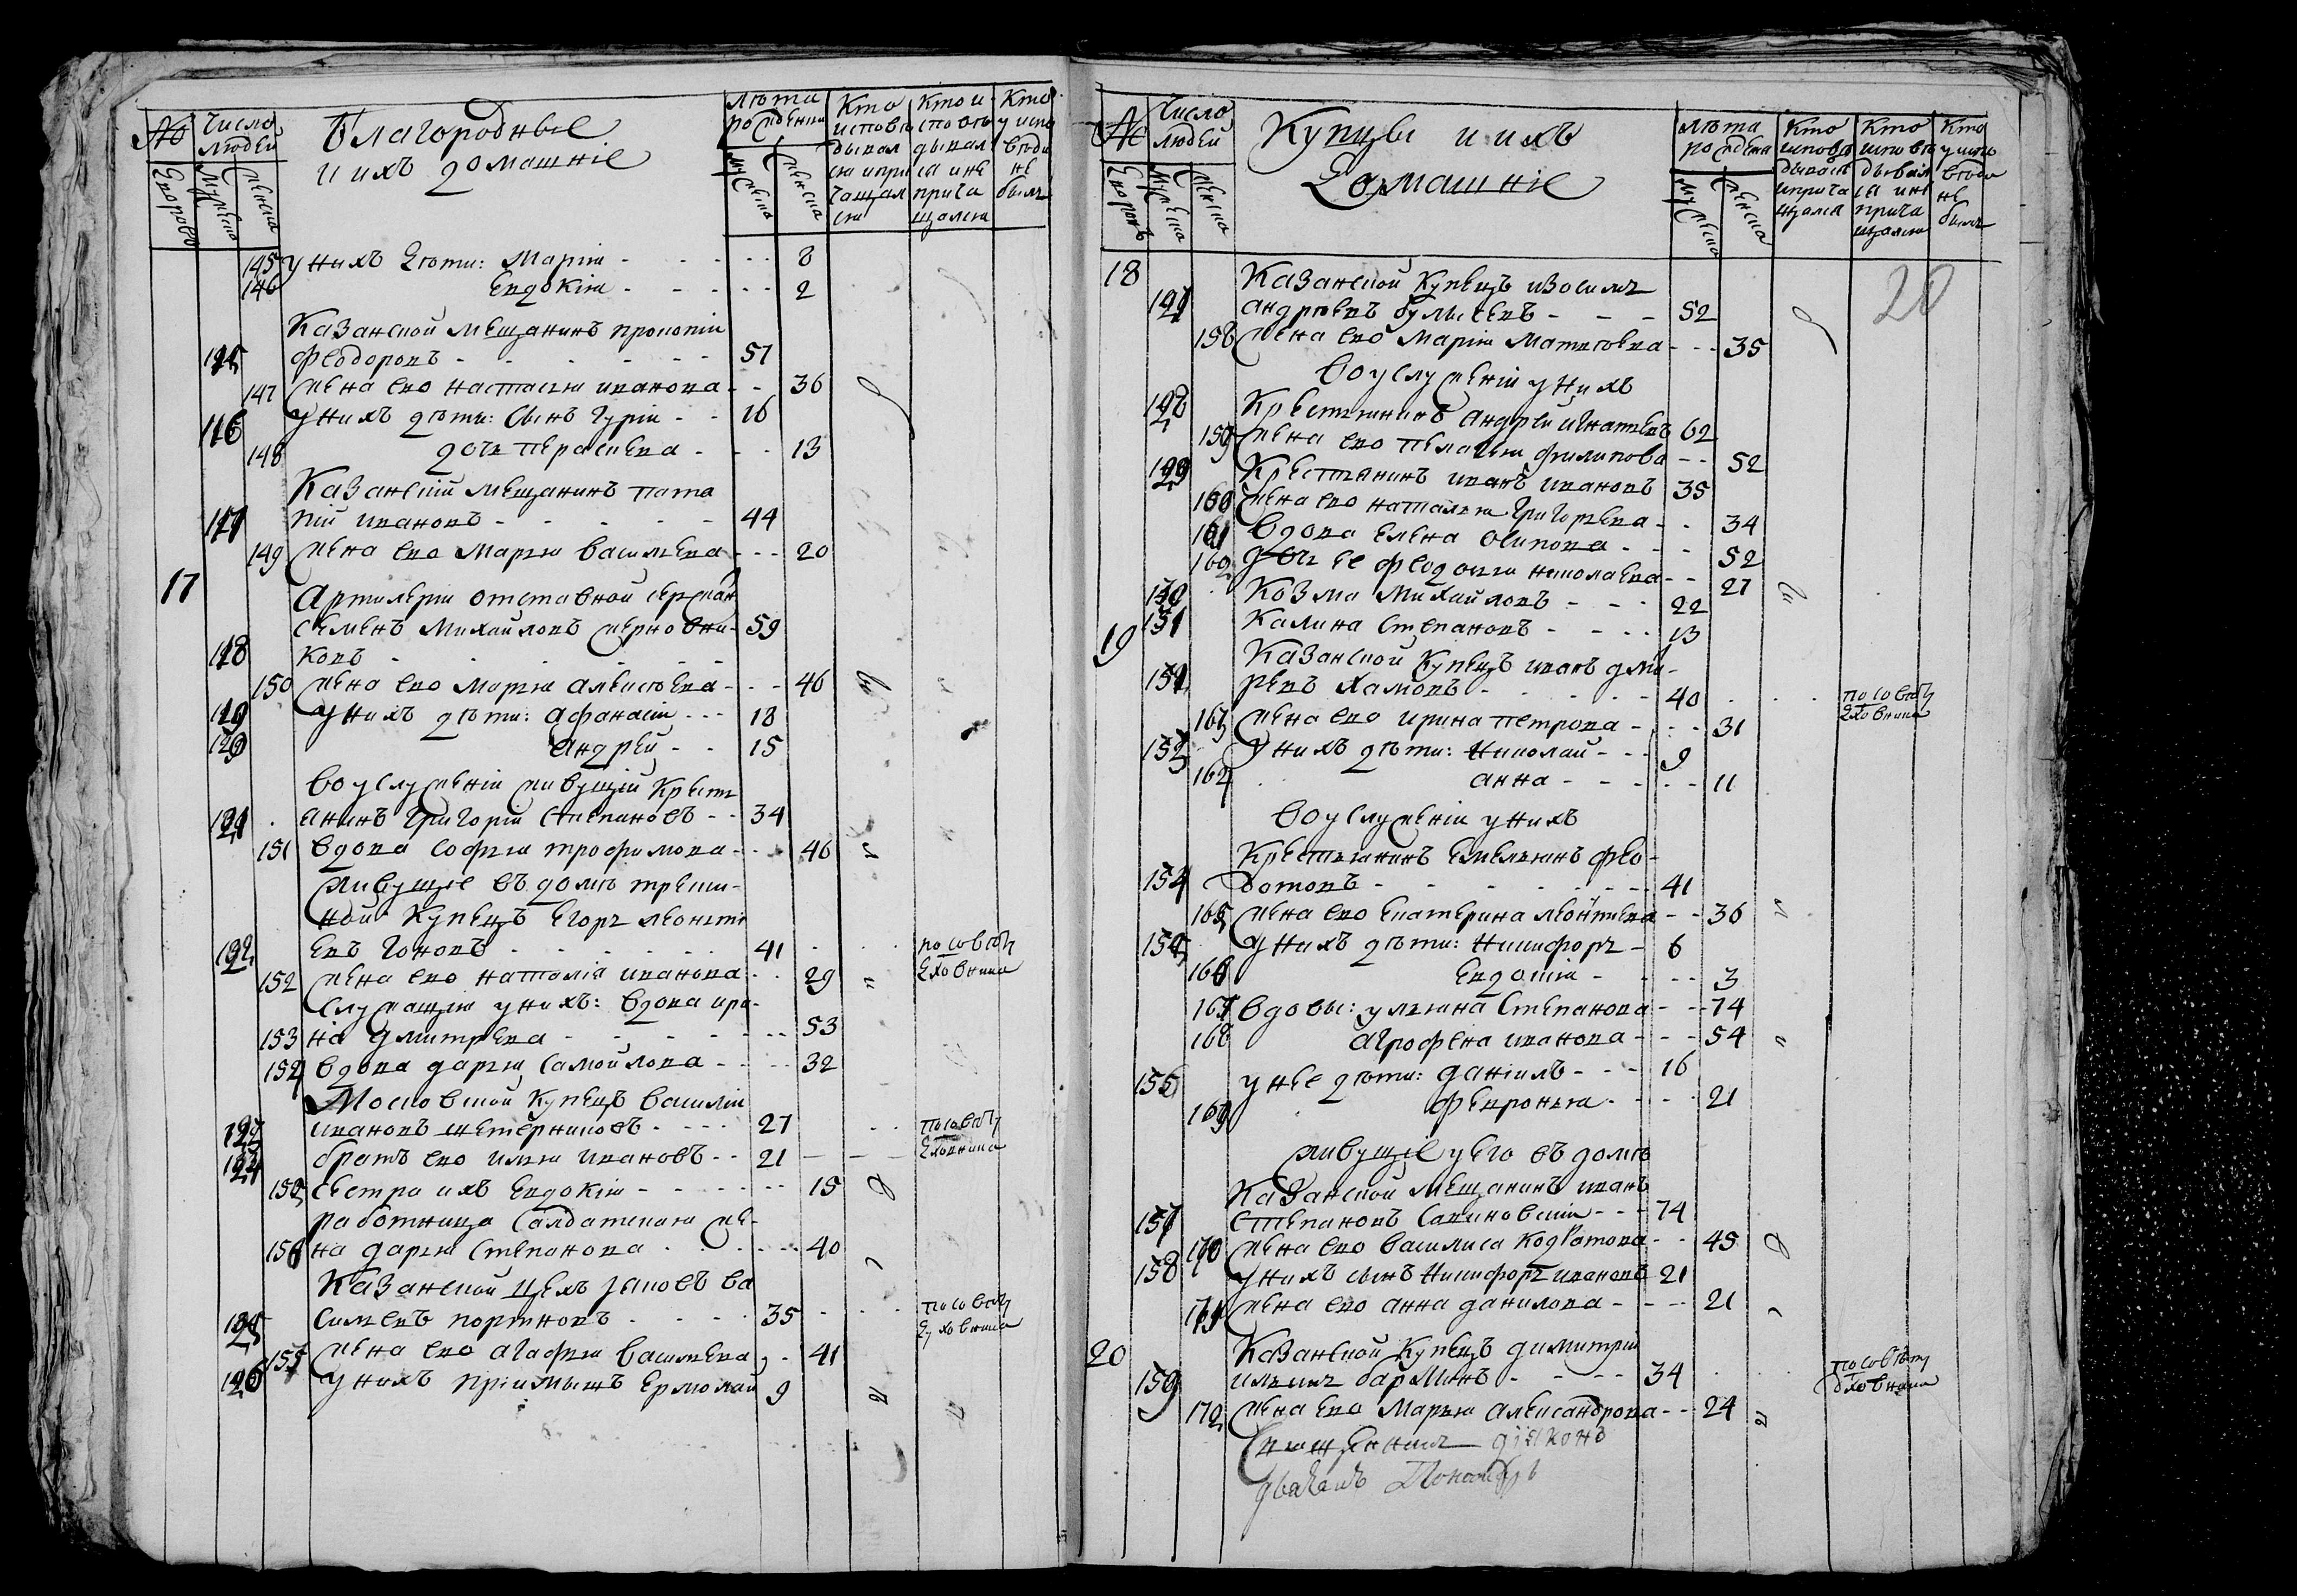 № Число людей Благородные и ихъ домашніе
Лѣта рожденія
Кто исповѣдывался и причащался
Кто исповѣдывался и не причащался
Кто у исповѣди не былъ
145 у нихъ дѣти: Марія - - 8
146 Евдокія - - 2
Казанской мещанинъ прокопій
115 феодоровъ - - 57
147 жена ево настасья иванова - - 36
116 у нихъ дѣти: сынъ гурій - - 16
148 дочь Парасковья - - 13
Казанскій мещанинъ пота
117 пій ивановъ - - 44
149 жена ево Марья васильева - - 20
17 Артилеріи отставной сержан
семенъ Михайловъ 59
118 ковъ
150 жена ево Марья алексѣева - - 46
119 у нихъ дѣти: афанасій - - 18
120 андрей - - 15
во услуженіи живущій Крест
121 анинъ григорій степановъ - - 34
151 вдова софья трофимова - - 46
живущіе въ домѣ
Купецъ Егоръ леонть
122 евъ - - 41 по совѣту
152 жена ево наталія иванова - - 29 духовника
служащія у нихъ: вдова ири-
153 на дмитрева - - 53
154 вдова дарья самойлова - - 32
Московской Купецъ василій
123 ивановъ - - 27 по совѣту
124 братъ ево илья ивановъ - - 21 духовника
155 сестра ихъ Евдокія - - 15
работница салдатская же-
156 на дарья степанова - - 40
Казанской цехъ яковъ ва
125 сильевъ портновъ - - 35 по совѣту
духовника
155 жена ево агафья васильева - - 41
126 у нихъ пріимышъ Ермолай 9
№ Число людей Купцы и ихъ Домашніе
Лѣта рожденія
Кто исповѣдывался и причащался
Кто исповѣдывался и не причащался
Кто у исповѣди не былъ
20
18 Казанской Купецъ
127 андреевъ - - 52
158 жена ево Марія Матвѣевна - - 35
во услуженіи у нихъ
128 Крестьянинъ андрей игнатьевъ 62
159 жена ево пелагея филипова - - 52
129 Крестьянинъ иванъ ивановъ 35
160 жена ево наталья григорьева - - 34
161 вдова елена осипова - - 52
162 дочь ее федосья николаева - - 27
130 Козма Михайловъ - - 22
131 Калина степановъ - - 13
19 Казанской Купецъ иванъ дми-
151 ревъ хамовъ - - 40 по совѣту
духовника
163 жена ево ирина петрова - - 31
152 у нихъ дѣти: николай - - 9
164 анна - - 11
во услуженіи у нихъ
Крестьянинъ емельянъ фео-
154 - - 41
165 жена ево екатерина леонтьева - - 36
154 у нихъ дѣти: никифоръ - 6
166 Евдокія - - 3
167 вдовы: ульяна степанова - - 74
168 агрофена иванова - - 54
156 у нее дѣти: даніилъ - - 16
169 февронья - - 21
живущіе у него въ домѣ
Казанской мещанинъ иванъ
157 степановъ - - 74
170 жена ево василиса кодратова - - 45
158 у нихъ сынъ никифоръ ивановъ 21
171 жена ево анна данилова - - 21
20 Казанской Купецъ димитрій
159 ильинъ - - 34 по совѣту
духовника
172 жена ево Марья александрова - - 24
дьяконъ